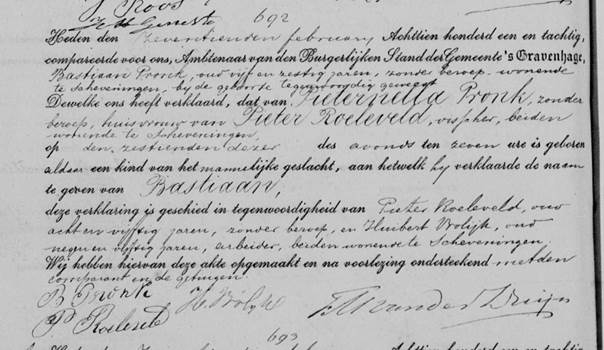 P. Roos
692
Heden den zeventienden februarij Achttien honderd een en tachtig,
compareerde voor ons, Ambtenaar van den Burgerlijken Stand der Gemeente 's Gravenhage,
Bastiaan Pronk, oud vijf en zestig jaren, zonder beroep, wonende
te Scheveningen, bij de geboorte tegenwoordig geweest
Dewelke ons heeft verklaard, dat van Pieternella Pronk, zonder
beroep, huisvrouw van Pieter Roeleveld, visscher, beiden
wonende te Scheveningen,
op den zestienden dezer des avonds ten zeven ure is geboren
aldaar een kind van het mannelijke geslacht, aan hetwelk hij verklaarde de naam
te geven van Bastiaan,
deze verklaring is geschied in tegenwoordigheid van Pieter Roeleveld, oud
acht en vijftig jaren, zonder beroep, en Huibert Wolijk, oud
negen en vijftig jaren, arbeider, beiden wonende te Scheveningen,
Wij hebben hiervan deze akte opgemaakt en na voorlezing onderteekend met den
comparant en de getuigen.
B Pronk
P. Roeleveld
693
Achttien honderd een en tachtig